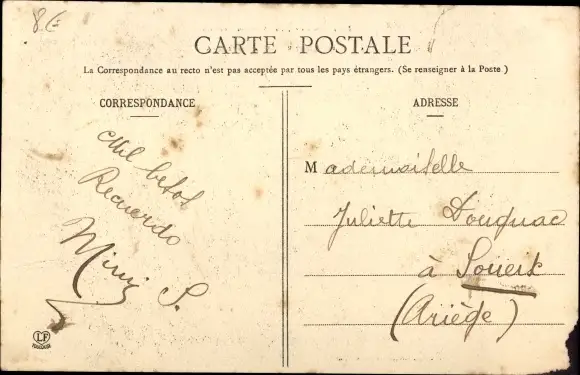 8€
CARTE POSTALE
La Correspondance au recto n'est pas acceptée par tous les pays étrangers. (Se renseigner à la Poste)
CORRESPONDANCE
Mil besos
Recuerdo
Mimi S.
LF
ADRESSE
Mademoiselle
Juliette Dougnac
à Soueix
(Ariège)